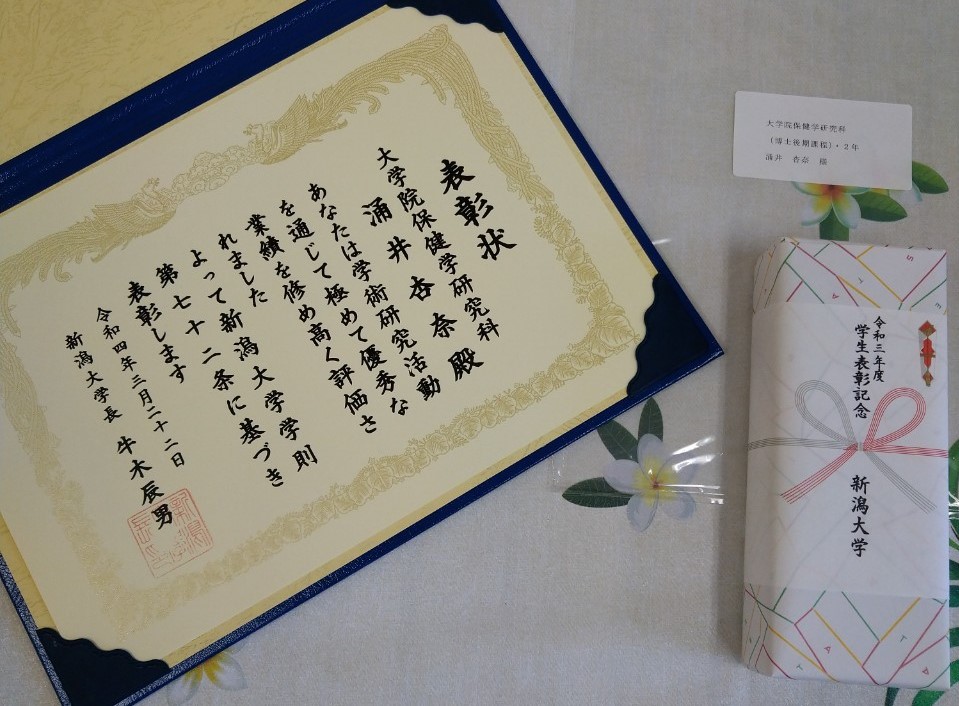 表彰状
大学院保健学研究科
涌井杏奈殿
あなたは学術研究活動
を通じて極めて優秀な
業績を修め高く評価さ
れました
よって新潟大学学則
第七十二条に基づき
表彰します
令和四年三月二十二日
新潟大学長 牛木辰男
大学院保健学研究科
(博士後期課程)・2年
涌井 杏奈 様
令和三年度
学生表彰記念
新潟大学